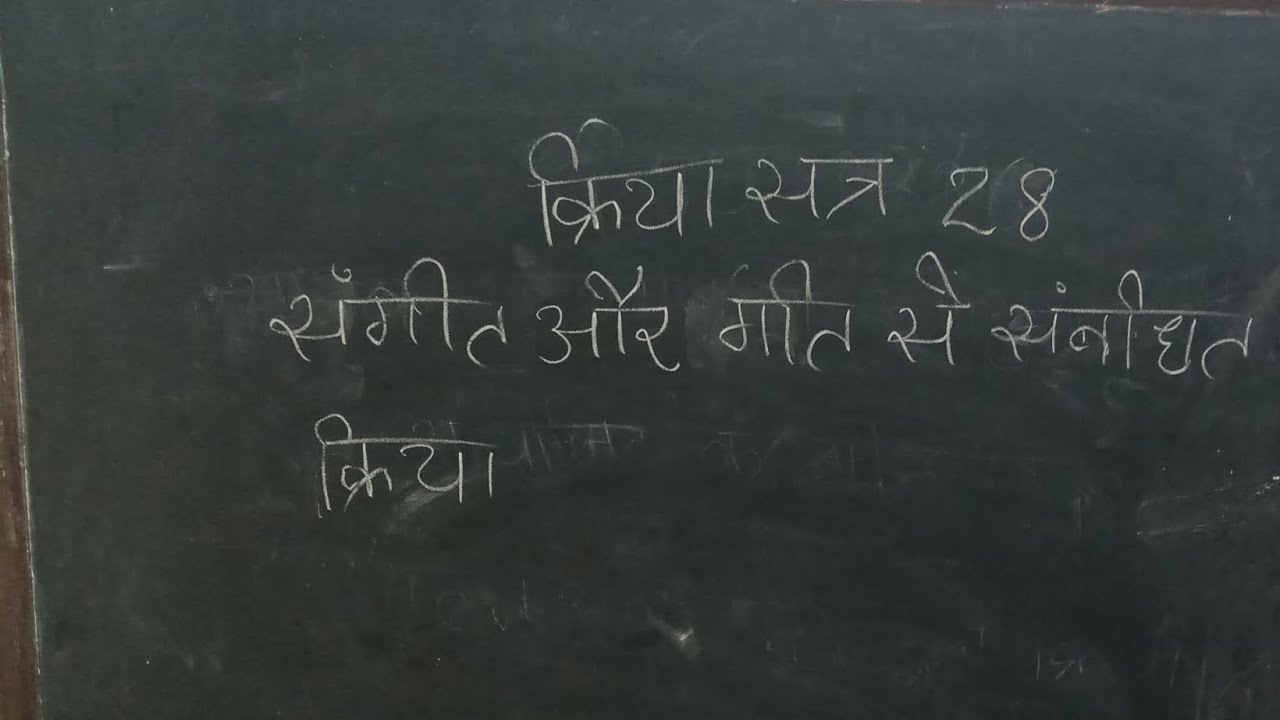 क्रिया सत्र 28
संगीत और गीत से संबंधित
क्रिया